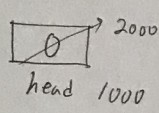 2000
0
head 1000